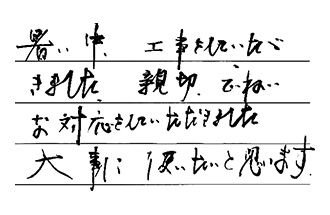 暑い中、工事をしていただ
きました。親切、ていねい
な対応をしていただきました
大事に使いたいと思います。